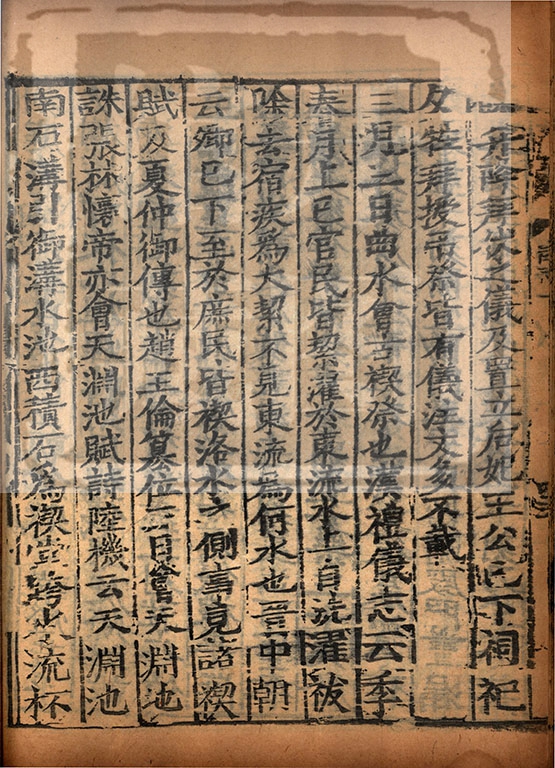 降拜嫁之儀及置立后妃王公已下祠祀
夕牲拜授弔祭皆有儀注文多不載
三月三日曲水會古禊祭也漢禮儀志云季
春月上巳官民皆絜濯於東流水上自洗濯祓
除去宿疾爲大絜不見東流爲何水也晉中朝
云卿已下至於庶民皆禊洛水之側事見諸禊
賦及夏仲御傳也趙王倫篡位三日會天淵池
誅張林懷帝亦會天淵池賦詩陸機云天淵池
南石溝引御溝水池西積石爲禊堂跨水流杯